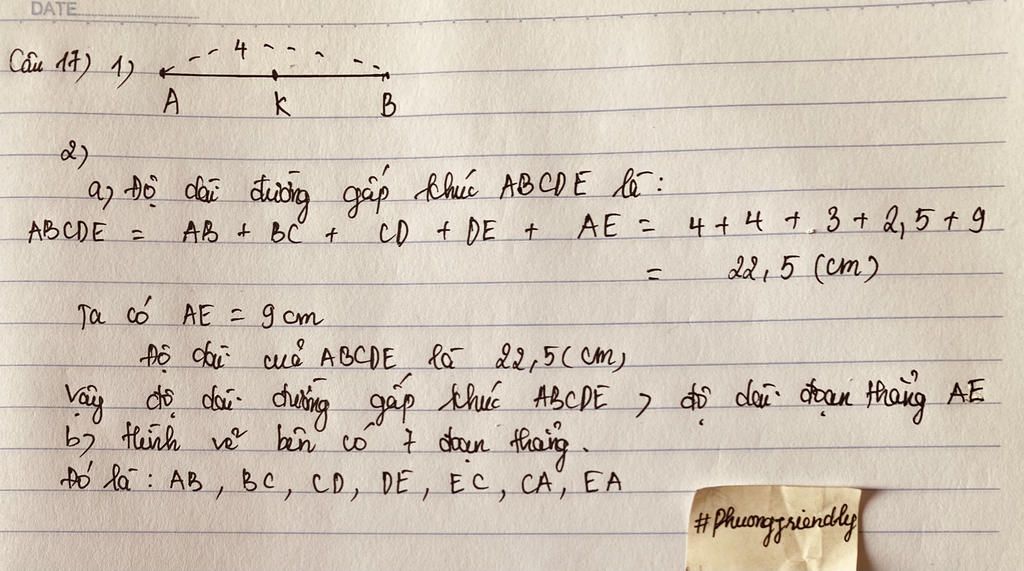 DATE
Câu 17) 1)
4
A K B
2)
a) Độ dài đường gấp khúc ABCDE là:
ABCDE = AB + BC + CD + DE + AE = 4 + 4 + 3 + 2,5 + 9
= 22,5 (cm)
Ta có AE = 9 cm
Độ dài của ABCDE là 22,5 (cm)
Vậy độ dài đường gấp khúc ABCDE > độ dài đoạn thẳng AE
b) Hình vẽ bên có 7 đoạn thẳng.
Đó là : AB, BC, CD, DE, EC, CA, EA
#Phuongfriendly